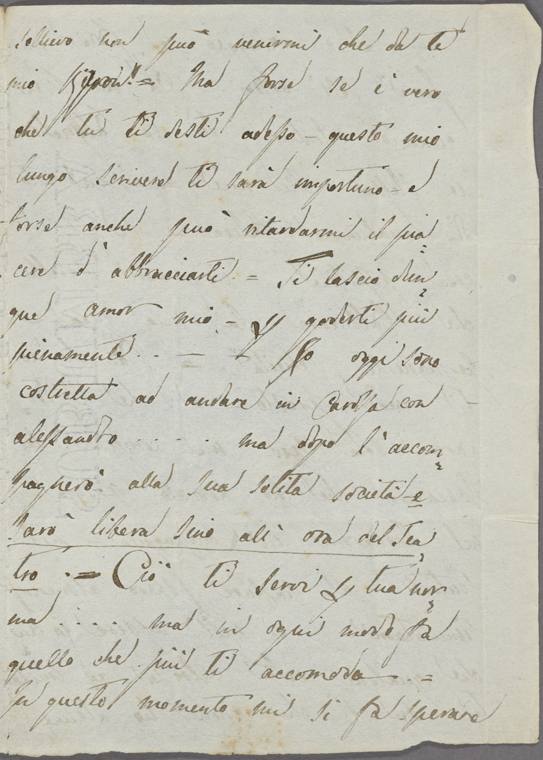 sollievo non può venirmi che da te
mio Byron! = Ma forse se è vero
che tu ti desti adesso - questo mio
lungo scrivere ti sarà importuno - e
forse anche può ritardarmi il pia=
cere d'abbracciarti = Ti lascio dun=
que amor mio - p goderti più
pienamente .. — oggi sono
costretta ad andare in Carossa con
alessandro . . . . ma dopo l'accom=
pagnerò alla sua solita società - e
sarò libera sino all'ora del Tea=
tro . = Ciò ti servi p tua nor=
ma . . . . ma in ogni modo fa
quello che più ti accomoda =
In questo momento mi si fa sperare